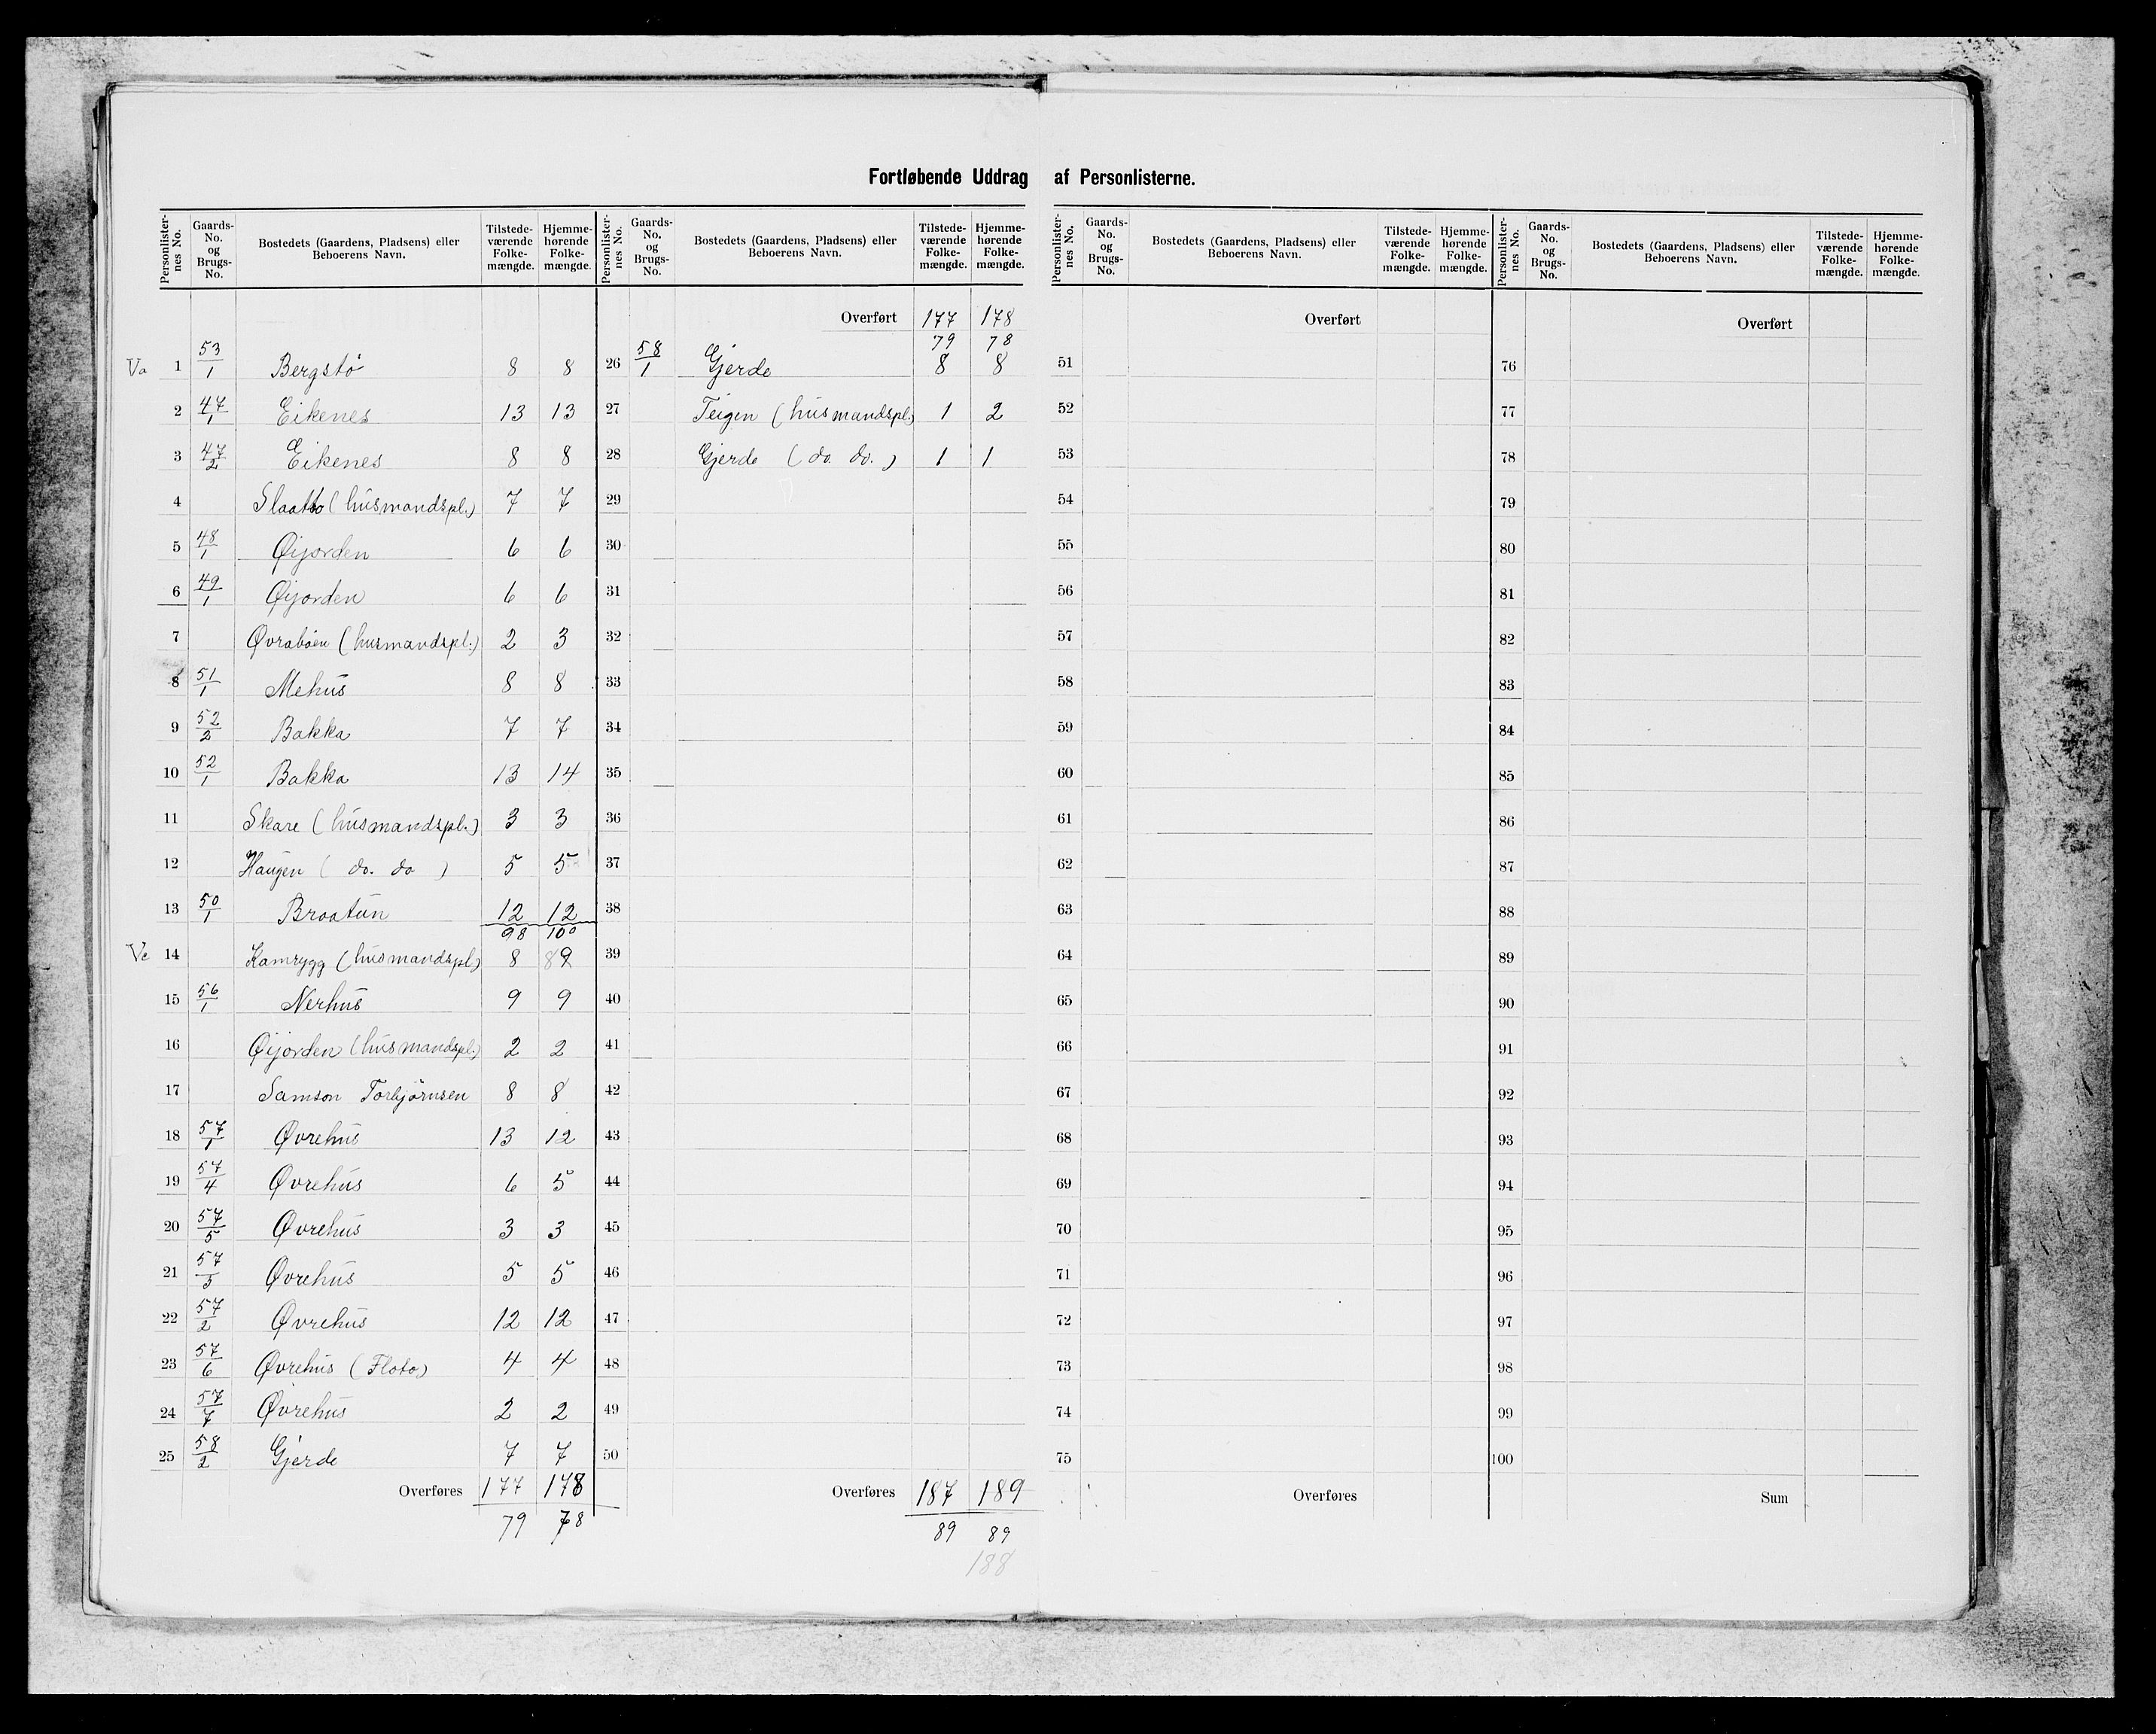 Fortløbende Uddrag af Personlisterne.
Personlister-nes No. | Gaards-No. og Brugs-No. | Bostedets (Gaardens, Pladsens) eller Beboerens Navn. | Tilstede-værende Folke-mængde. | Hjemme-hørende Folke-mængde.
Va 1 53/1 Bergstö 8 8
2 47/1 Eikenes 13 13
3 47/2 Eikenes 8 8
4 Slaatto (husmandspl.) 7 7
5 48/1 Øijorden 6 6
6 49/1 Øijorden 6 6
7 Øvrabøen (husmandspl.) 2 3
8 51/1 Mehus 8 8
9 52/2 Bakka 7 7
10 52/1 Bakka 13 14
11 Skare (husmandspl.) 3 3
12 Haugen ( do. do ) 5 5
13 50/1 Braatun 12 12
98 100
Vc 14 Kamrygg (husmandspl.) 8 9
15 56/1 Nerhus 9 9
16 Øijorden (husmandspl.) 2 2
17 Samson Torbjörnsen 8 8
18 57/1 Øvrehus 13 12
19 57/4 Øvrehus 6 5
20 57/5 Øvrehus 3 3
21 57/3 Øvrehus 5 5
22 57/2 Øvrehus 12 12
23 57/6 Øvrehus (Flato) 4 4
24 57/7 Øvrehus 2 2
25 58/2 Gjerde 7 7
Overføres 177 178
79 78
Personlister-nes No. | Gaards-No. og Brugs-No. | Bostedets (Gaardens, Pladsens) eller Beboerens Navn. | Tilstede-værende Folke-mængde. | Hjemme-hørende Folke-mængde.
Overført 177 178
79 78
26 58/1 Gjerde 8 8
27 Teigen (husmandspl.) 1 2
28 Gjerde (do. do.) 1 1
29
30
31
32
33
34
35
36
37
38
39
40
41
42
43
44
45
46
47
48
49
50
Overføres 187 189
89 89
188
Personlister-nes No. | Gaards-No. og Brugs-No. | Bostedets (Gaardens, Pladsens) eller Beboerens Navn. | Tilstede-værende Folke-mængde. | Hjemme-hørende Folke-mængde.
Overført
51
52
53
54
55
56
57
58
59
60
61
62
63
64
65
66
67
68
69
70
71
72
73
74
75
Overføres
Personlister-nes No. | Gaards-No. og Brugs-No. | Bostedets (Gaardens, Pladsens) eller Beboerens Navn. | Tilstede-værende Folke-mængde. | Hjemme-hørende Folke-mængde.
Overført
76
77
78
79
80
81
82
83
84
85
86
87
88
89
90
91
92
93
94
95
96
97
98
99
100
Sum